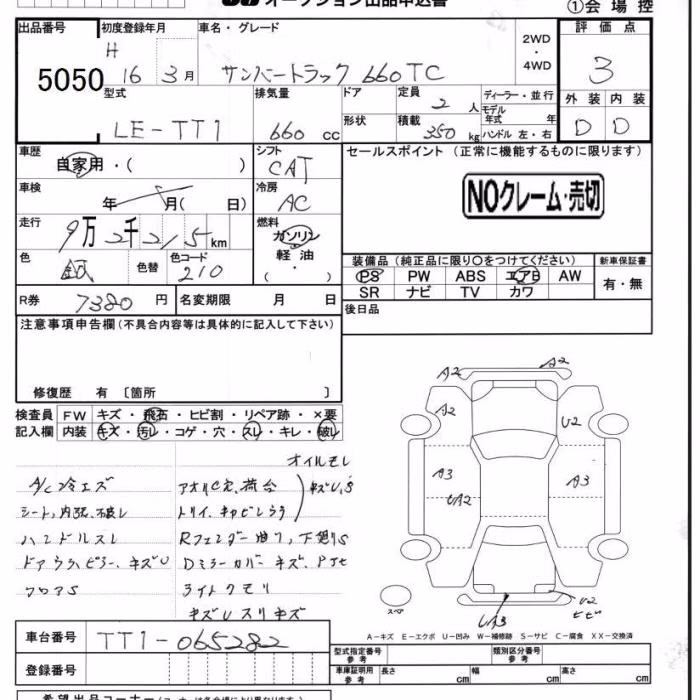 オークション出品申込書
①会場控
出品番号 初度登録年月 車名・グレード 評価点
5050 H 16 3月 サンバートラック 660 TC 2WD・4WD 3
型式 排気量 ドア 定員 2人 ディーラー・並行 外装 内装
LE-TT1 660 cc 形状 積載 350kg モデル年式 年 ハンドル 左・右 D D
車歴 シフト セールスポイント (正常に機能するものに限ります)
自家用・( ) CAT
車検 年 月( 日) 冷房 AC NOクレーム・売切
走行 9万2千215km 燃料 ガソリン・軽油・( )
色 銀 色替 色コード 210
装備品 (純正品に限り○をつけてください) 新車保証書
PS PW ABS エアB AW 有・無
SR ナビ TV カワ
R券 7380円 名変期限 月 日 後日品
注意事項申告欄(不具合内容等は具体的に記入して下さい)
修復歴 有 〔箇所 〕
検査員 FW キズ・飛石・ヒビ割・リペア跡・×要
記入欄 内装 キズ・汚レ・コゲ・穴・スレ・キレ・破レ
オイルモレ
A/C冷エズ アオリC欠、荷台
シート、内張、破レ トリイ、キャビンウラ キズU,S
ハンドルスレ Rフェンダー曲り、下廻りS
ドアウラ、ピラー、キズU Dミラーカバーキズ、
フロアS ライトクモリ
キズUスリキズ
A2 A2
A2 U2
A3 UA2 A3
スペア UA3 U2 ヒビ
A-キズ E-エクボ U-凹み W-補修跡 S-サビ C-腐食 XX-交換済
車台番号 TT1-065282
型式指定番号 参考 類別区分番号 参考
登録番号 車庫証明用 参考 長さ cm 幅 cm 高さ cm
希望出品コーナー